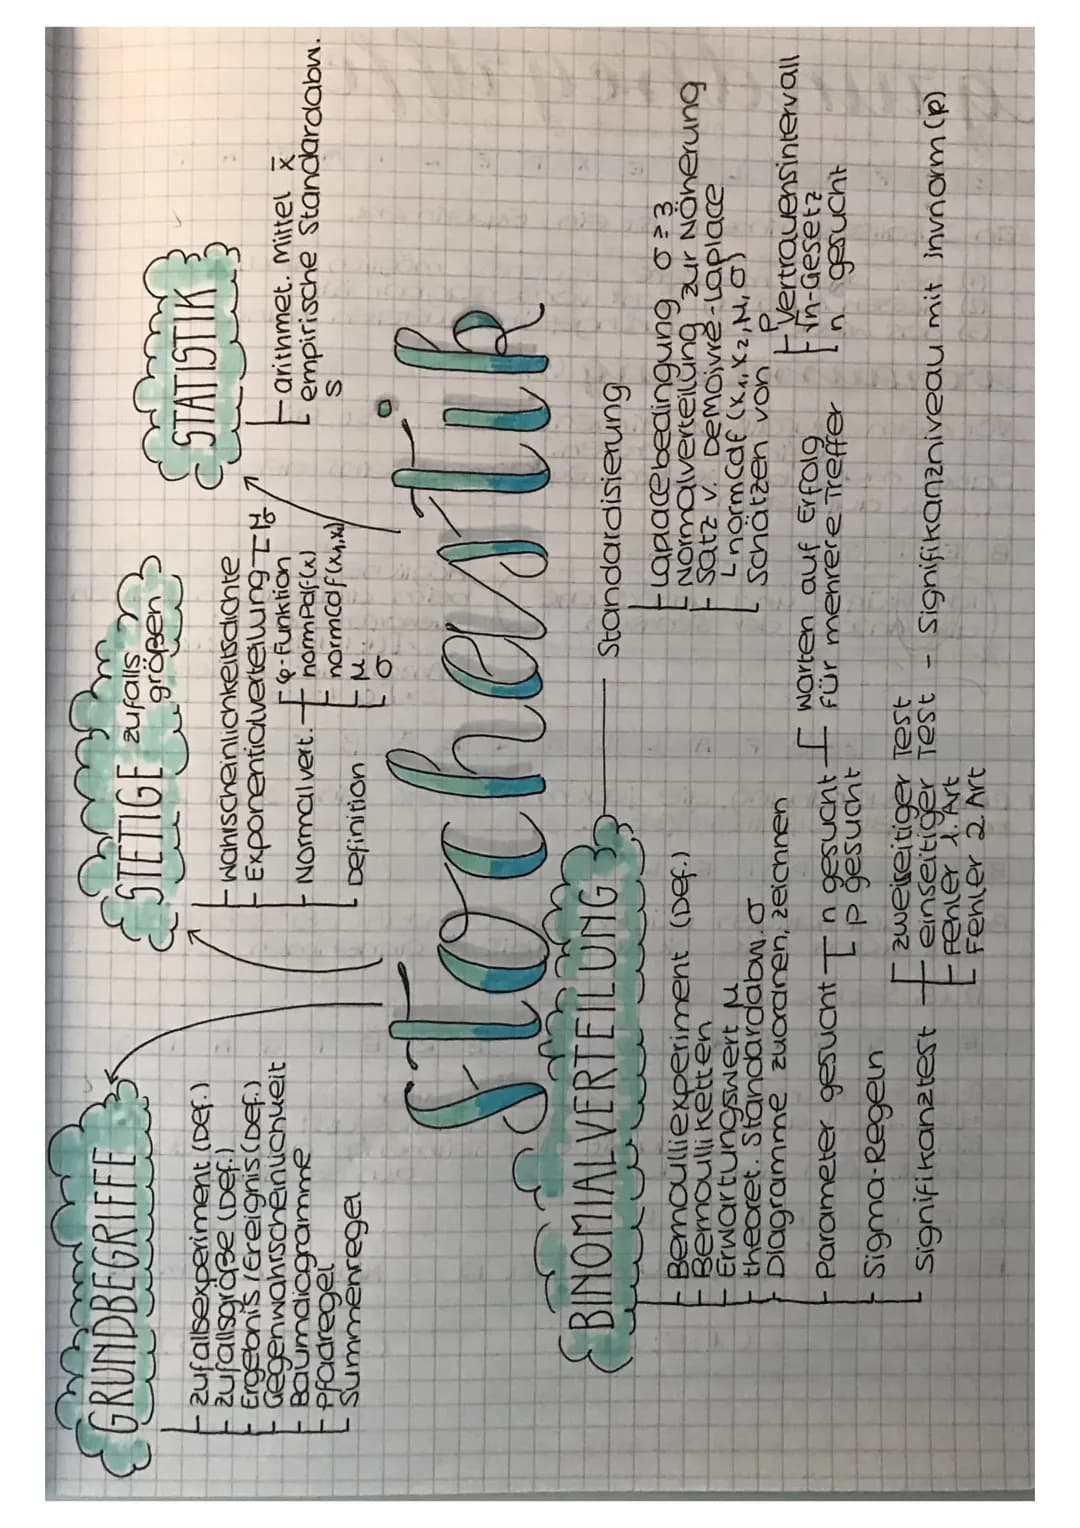 Stochastik
GRUNDBEGRIFFE
Zufallsexperiment (Def.)
Zufallsgröße (Def.)
Ergebnis / Ereignis (Def.)
Gegenwahrscheinlichkeit
Baumdiagramme
Pfadregel
Summenregel
STETIGE zufalls
größen
Wahrscheinlichkeitsdichte
Exponentialverteilung
μ
σ
Normalvert.
φ-Funktion
normpdf(x)
normcdf(x₁,x₂)
μ
σ
Definition
STATISTIK
arithmet. Mittel x̄
empirische Standardabw.
s
BINOMIALVERTEILUNG
Bernoulliexperiment (Def.)
Bernoulli ketten
Erwartungswert μ
theoret. Standardabw. σ
Diagramme zuordnen, zeichnen
Parameter gesucht
n gesucht
p gesucht
warten auf Erfolg
für mehrere Treffer
Sigma-Regeln
Signifikanztest
zweiseitiger Test
einseitiger Test - Signifikanzniveau mit invnorm(p)
Fehler 1. Art
Fehler 2. Art
Standardisierung
Laplacebedingung σ ≥ 3
Normalverteilung zur Näherung
Satz v. Demoivre-Laplace
normcdf (x₁, x₂, μ, σ)
Schätzen von p
Vertrauensintervall
√n-Gesetz
n gesucht